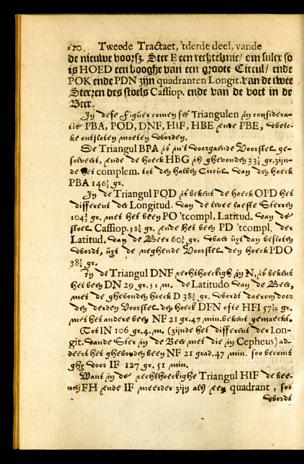 120. Tweede Tractaet, 'tderde deel, vande
de nieuwe voorsz. Ster E een rechtehnie/ om sulcr so
is HOED een booghe van een groote Circul/ ende
POK ende PDN zijn quadranten Longit. van de twee
Sterren des stoels Cassiop. ende van de voet in de
Beer.
In dese Figuer comen ses Triangulen in considera-
tie PBA, POD, DNF, HIF, HBE ende PBE, welcke
ontsloten moeten worden.
De Triangul BPA is in't voorgaende Voorstel ge-
solveert, ende de hoeck HBG is ghevonden 33⅓ gr. zijn-
de het complem. tot den halven Circul van den hoeck
PBA 146⅔ gr.
In de Triangul POD is bekent de hoeck OPD het
different des Longitud. van de twee laetste Sterren
gr. met het been PO 'tcompl. Latitud. van de
stoel Cassiop. gr. ende het been PD 'tcompl. der
Latitud. van de Beer gr. waer uyt dan besloten
wordt, uyt de seghende Voorstel, den hoeck PDO
38⅔ gr.
In de Triangul DNF rechthoeckigh in N, is bekent
het been DN 29 gr. 51 m. de Latitudo van de Beer,
met de ghevonden hoeck D 38⅔ gr. wordt daerom door
den derden Voorstel, den hoeck DFN ofte HFI gr.
met het ander been NF 21 gr. 47 min. bekent gemaeckt.
Tot IN 106 gr. 4 m. (zijnde het different der Lon-
git. vande Ster in de Beer met die in Cepheus) ad-
deert het ghevonden been NF 21 grad. 47 min. soo becomt
ghy voor IF 127 gr. 51 min.
Want in de rechthoeckighe Triangul HIF de bee-
nen FH ende IF meerder zijn als een quadrant, soo
wordt